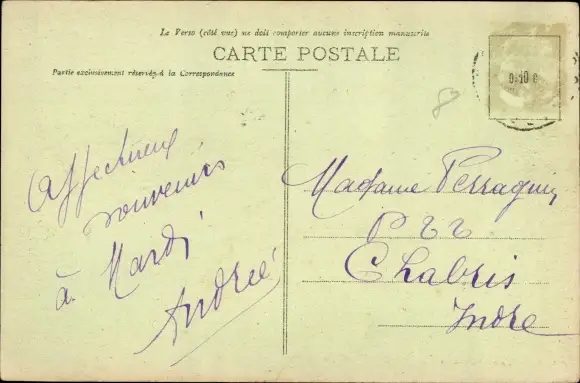 Le Verso (côté vue) ne doit comporter aucune inscription manuscrite
CARTE POSTALE
Partie exclusivement réservée à la Correspondance
0.10 c
80
Affectueux
souvenirs
à Mardi
Andrée
Madame Perraguin
P T T
Chabris
Indre